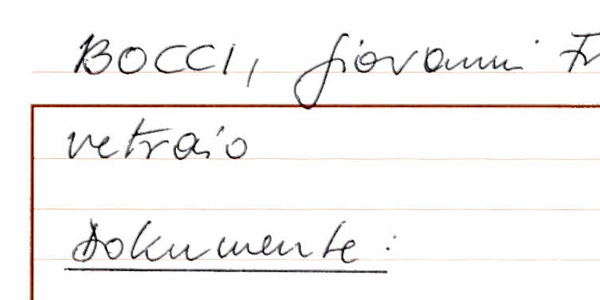 BOCCI, Giovanni Fr
vetraio
Dokumente: